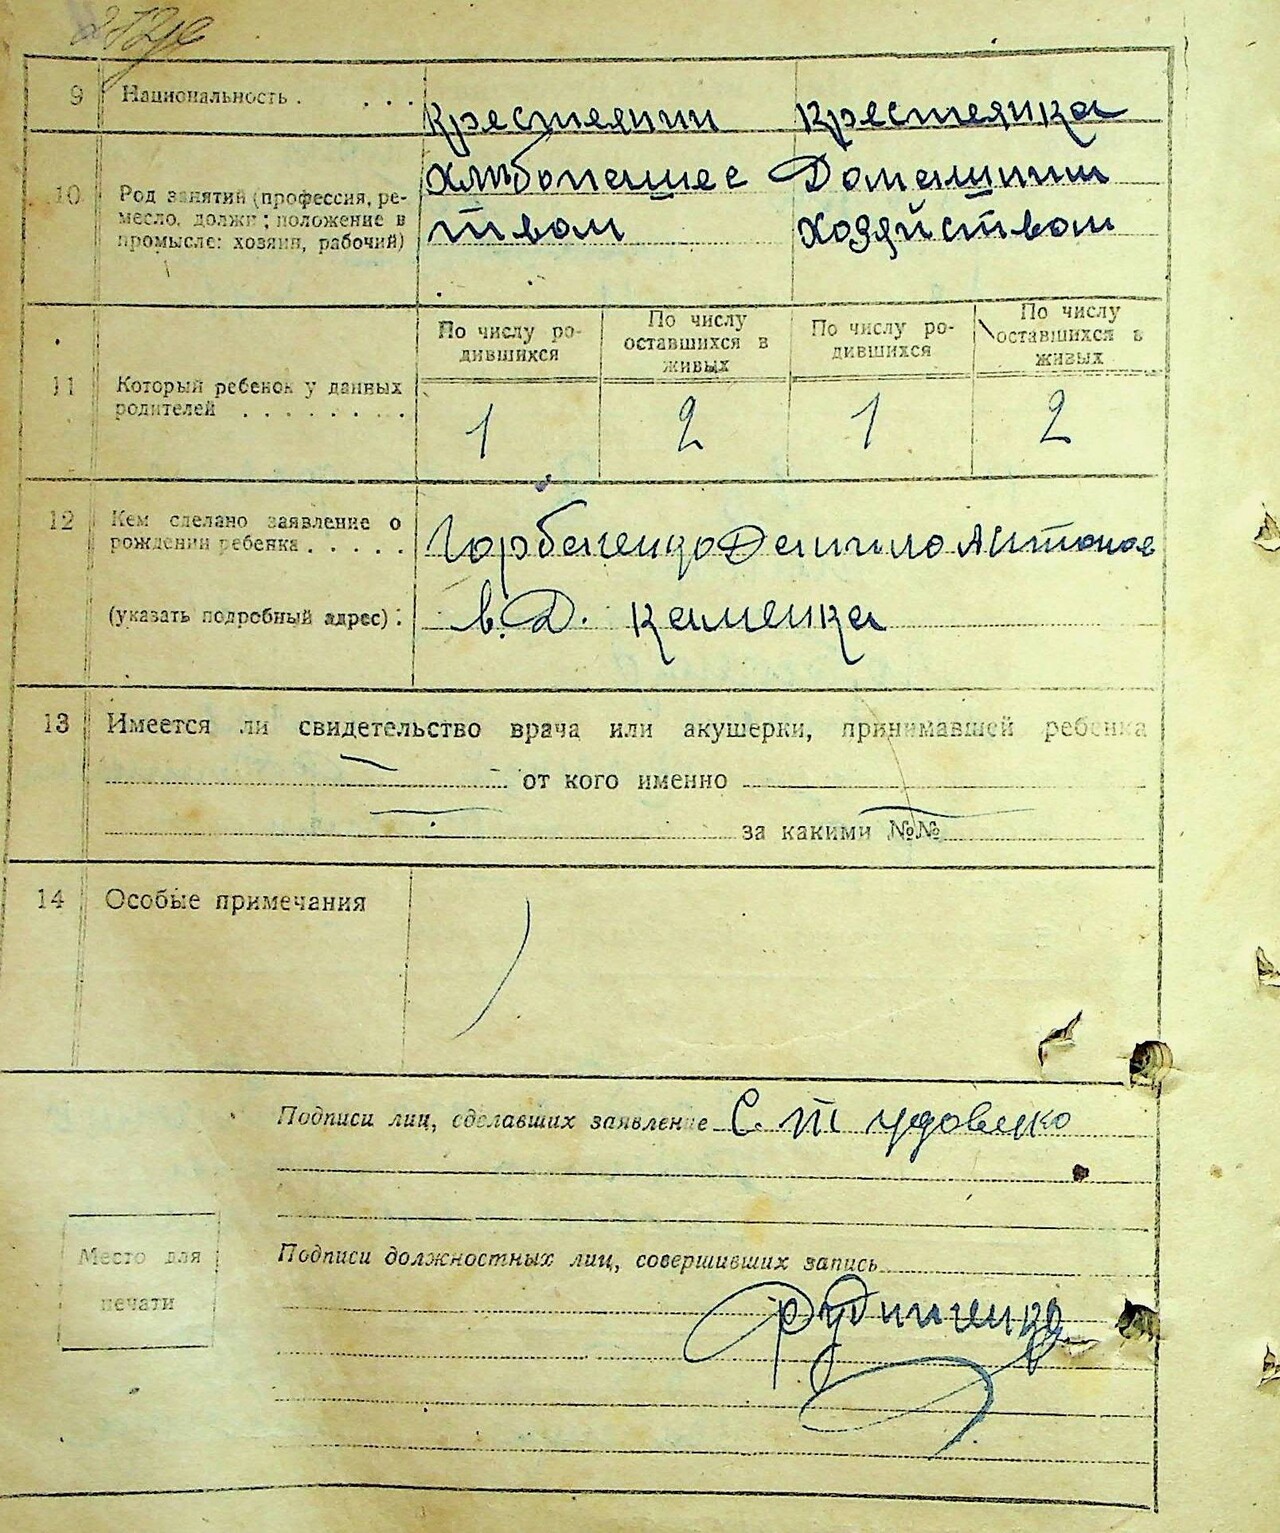 9 Национальность . . . . крестеянин крестеянка
10 Род занятий (профессия, ре- хлѣбопашес Домашним
месло, должн; положение в твом хозяйством
промысле: хозяин, рабочий)
По числу ро-
дившихся
По числу
оставшихся в
живых
По числу ро-
дившихся
По числу
оставшихся в
живых
11 Который ребенок у данных
родителей . . . . . . . . 1 2 1 2
12 Кем сделано заявление о
рождении ребенка . . . . . Данило Антонов
(указать подробный адрес) : в. Д. каменка
13 Имеется ли свидетельство врача или акушерки, принимавшей ребенка
от кого именно
за какими №№
14 Особые примечания
Подписи лиц, сделавших заявление
Подписи должностных лиц, совершивших запись
Место для
печати
Рудиченко